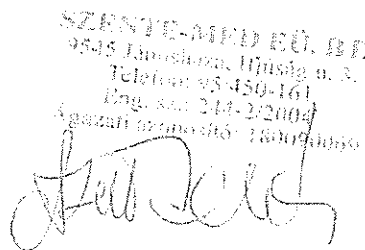 SZENTE-MED EÜ. BT.
9545 Jánosháza, Ifjúság u. 3.
Telefon: 95-450-161
Eng. sz.: 244-2/2004
Ágazati azonosító: 180090069